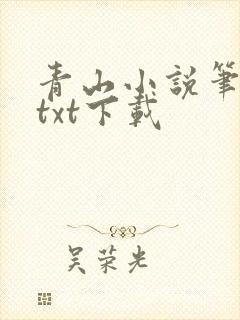 青山小說筆
txt下載
吴荣光